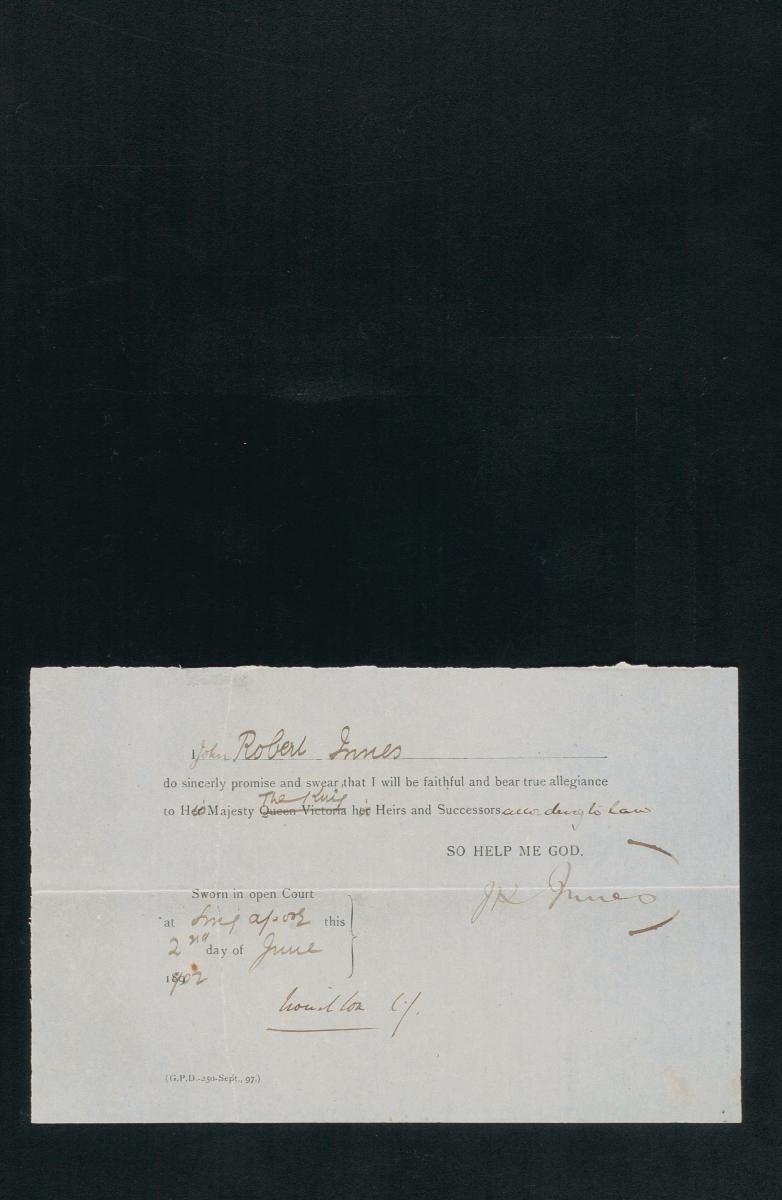 I John Robert Innes
do sincerly promise and swear that I will be faithful and bear true allegiance
to His Majesty Queen Victoria The King his Heirs and Successors according to law
SO HELP ME GOD.
Sworn in open Court
at Singapore this
2nd day of June
1902
J R Innes
Lionel Cox C.J.
(G.P.D.-250-Sept., 97.)